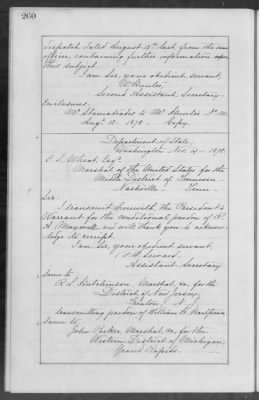 260
Dispatch dated August 12th last, from the same
officer, containing further information upon
this subject.
I am Sir, your obedient servant,
W. Hunter,
Second Assistant Secretary
Enclosures.
Mr. to Mr. Hunter, No.
Aug. 12. 1878. Copy.
Department of State,
Washington, Nov. 1878.
E. S. Wheat, Esq.
Marshal of the United States for the
Middle District of Tennessee,
Nashville Tenn.
Sir:
I transmit herewith, the President's
Warrant for the conditional pardon of R.
A. Maxwell, and will thank you to acknow-
ledge its receipt.
I am Sir, your obedient servant.
F. W. Seward.
Assistant Secretary
Same to
R. L. Hutchinson, Marshal &c, for the
District of New Jersey,
Trenton, N. J.
transmitting pardon of William G.
Same to
John Parker, Marshal, &c, for the
Western District of Michigan,
Grand Rapids.